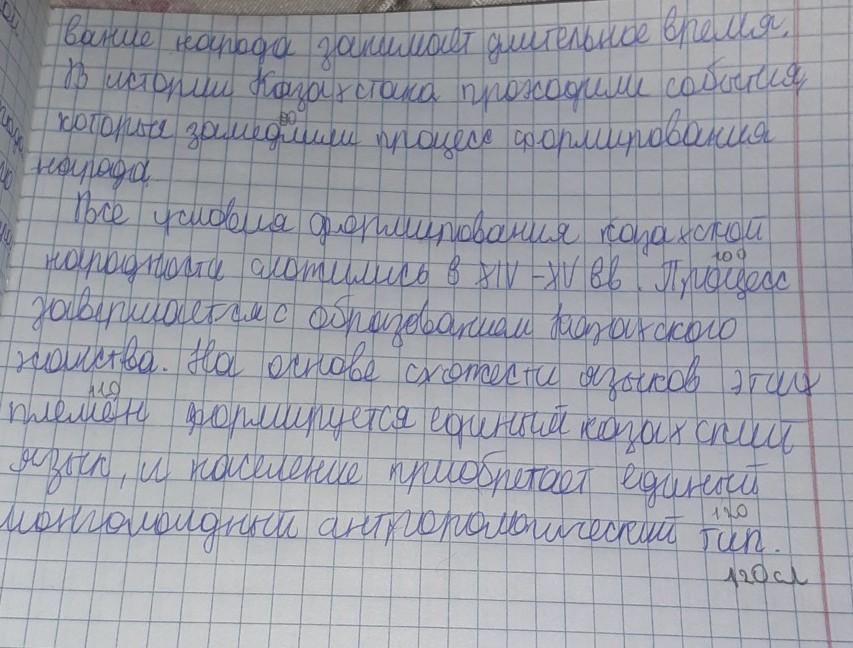 вание народа занимает длительное время.
В истории Казахстана проходили события,
90
которые замедлили процесс формирования
народа.
Все условия формирования казахской
100
народности сложились в XIV-XV вв. Процесс
завершается с образованием Казахского
ханства. На основе схожести языков этих
110
племён формируется единый казахский
язык, и население приобретает единый
120
монголоидный антропологический тип.
120 сл